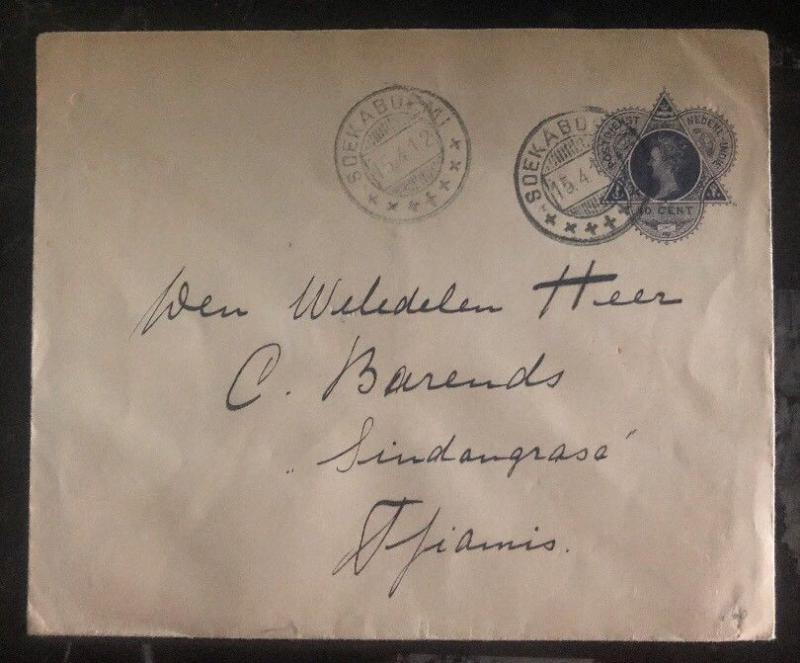 SOEKABOEMI
15.4.12
SOEKABOE
15.4.1
POSTDIENST
NEDERL-INDIE
10 CENT
Den Weledelen Heer
C. Barends
Sindangrasa
Tjiamis.